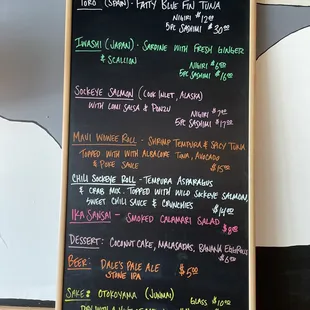 TORO (SPAIN) - FATTY BLUE FIN TUNA
NIGIRI $12.00
5PC SASHIMI $30.00
IWASHI (JAPAN) - SARDINE WITH FRESH GINGER
& SCALLION
NIGIRI $6.00
5PC SASHIMI $16.00
SOCKEYE SALMON (COOK INLET, ALASKA)
WITH LOMI SALSA & PONZU
NIGIRI $7.00
5PC SASHIMI $17.00
MAUI WOWEE ROLL - SHRIMP TEMPURA & SPICY TUNA
TOPPED WITH WITH ALBACORE TUNA, AVOCADO
& POKE SAUCE
$15.00
CHILI SOCKEYE ROLL - TEMPURA ASPARAGUS
& CRAB MIX. TOPPED WITH WILD SOCKEYE SALMON,
SWEET CHILI SAUCE & CRUNCHIES
$14.00
IKA SANSAI - SMOKED CALAMARI SALAD
$9.00
DESSERT: COCONUT CAKE, MALASADAS, BANANA EGGROLLS
$6.00
BEER: DALE'S PALE ALE
STONE IPA $5.00
SAKE: OTOKOYAMA (JUNMAI) GLASS $10.00
DRY WITH A